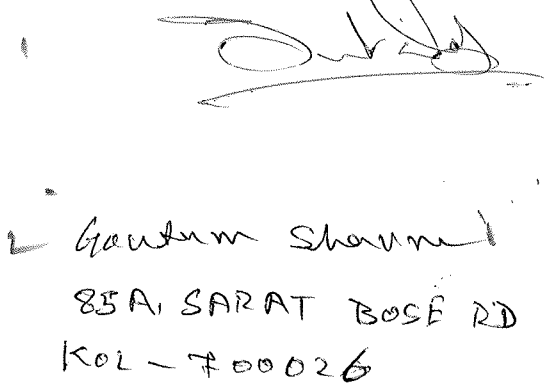 Gautam Sharma
85A, SARAT BOSE RD
KOL - 700026